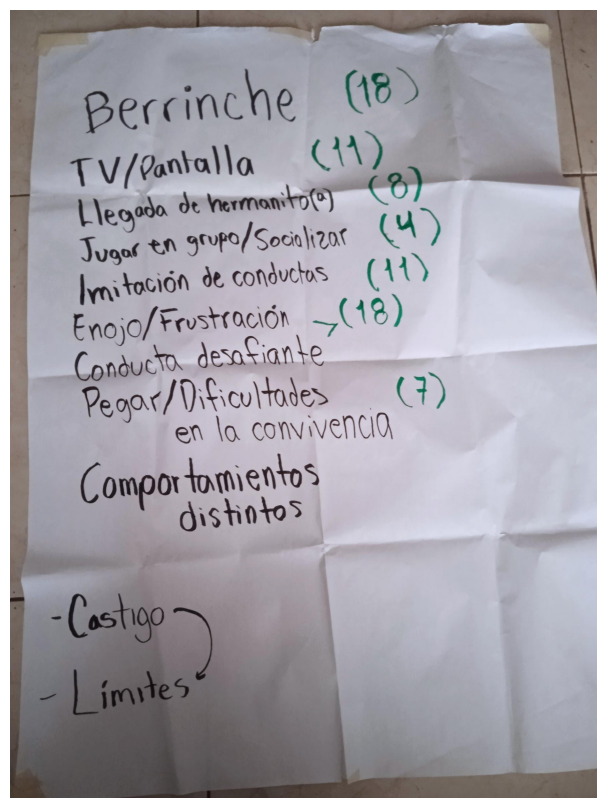 Berrinche (18)
TV/Pantalla (11)
Llegada de hermanito(a) (8)
Jugar en grupo/Socializar (4)
Imitación de conductas (11)
Enojo/Frustración → (18)
Conducta desafiante
Pegar/Dificultades (7)
en la convivencia
Comportamientos
distintos
- Castigo
- Límites